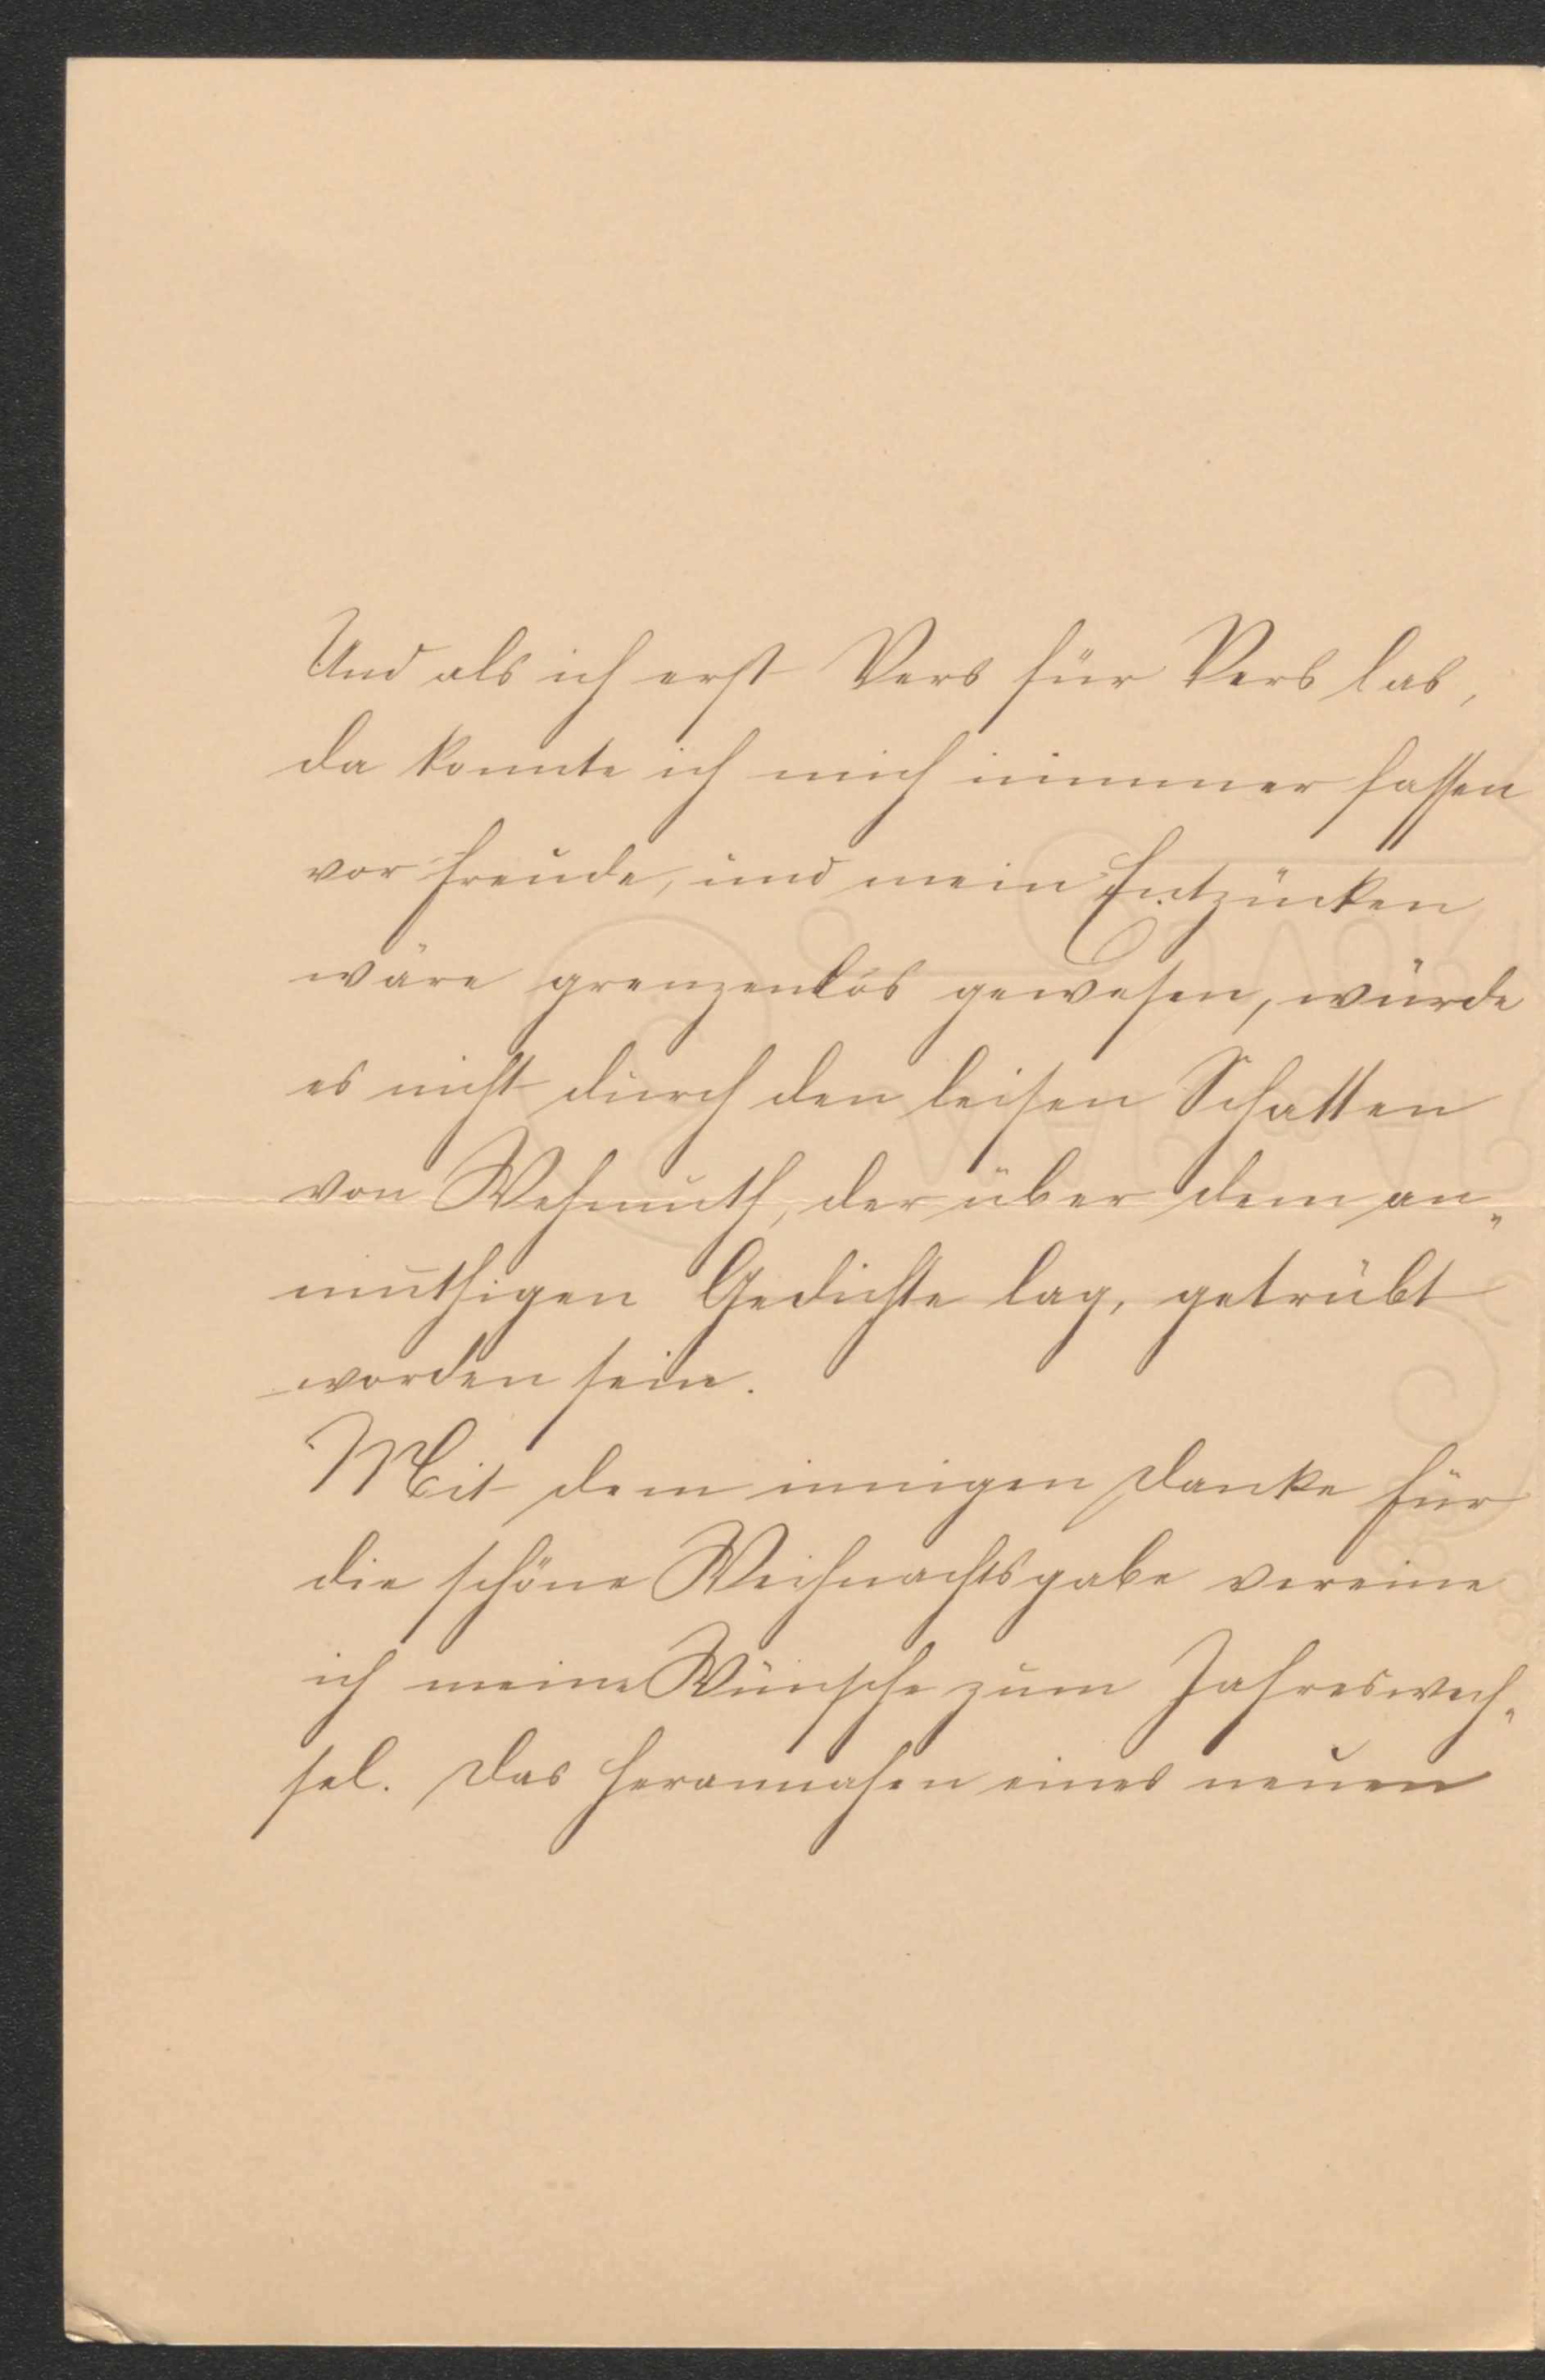 Und als ich erst Vers für Vers las,
da konnte ich mich nimmer fassen
vor Freude, und mein Entzücken
wäre grenzenlos gewesen, würde
es nicht durch den leisen Schatten
von Wehmuth, der über dem an„
muthigen Gedichte lag, getrübt
worden sein.
Mit dem innigen Danke für
die schöne Weihnachtsgabe vereine
ich meine Wünsche zum Jahreswech„
sel. Das Herannahen eines neuen